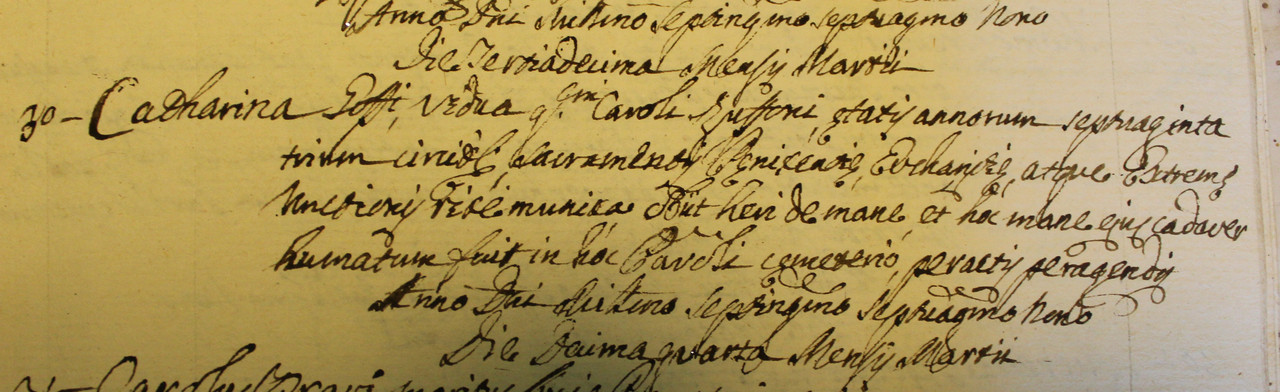 Anno Dni Millmo Septingmo septuagmo Nono
Die Tertiadecima Mensis Martii
30 - Catharina Goffi, vidua qm. Caroli Ruffoni, ętatis annorum septuaginta
trium circitèr, Sacramentis Penitentię, Eucharistię, atque Extremę
Unctionis ritè munita Obiit heri de mane, et hoc mane ejus cadaver
humatum fuit in hoc Paroli cęmeterio, peractis peragendis
Anno Dni Millmo Septingmo septuagmo Nono
Die Decima quarta Mensis Martii
31 - Carolus maritus